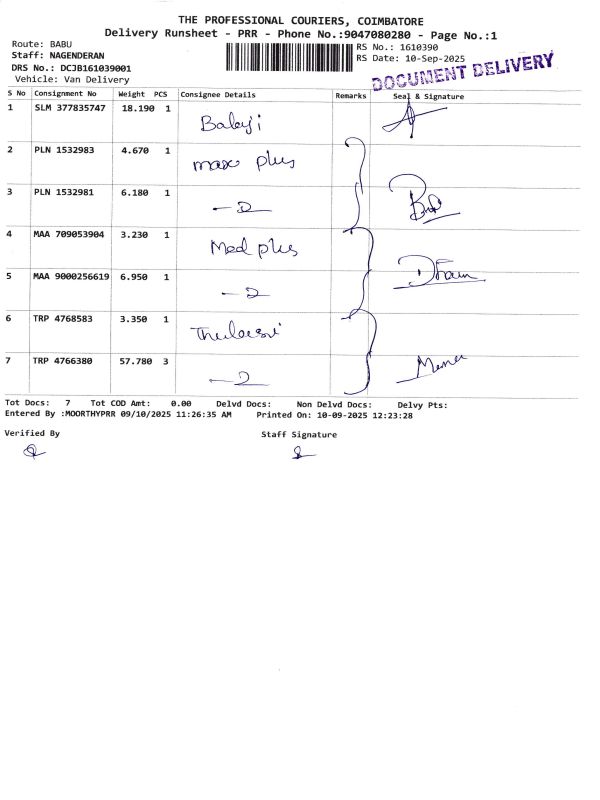 THE PROFESSIONAL COURIERS, COIMBATORE
Delivery Runsheet - PRR - Phone No.:9047080280 - Page No.:1
Route: BABU
RS No.: 1610390
Staff: NAGENDERAN
RS Date: 10-Sep-2025
DRS No.: DCJB161039001
DOCUMENT DELIVERY
Vehicle: Van Delivery
S No Consignment No Weight PCS Consignee Details Remarks Seal & Signature
1 SLM 377835747 18.190 1 Balaji
2 PLN 1532983 4.670 1 max plus
3 PLN 1532981 6.180 1 —2
4 MAA 709053904 3.230 1 Med plus
5 MAA 9000256619 6.950 1 —2
6 TRP 4768583 3.350 1
7 TRP 4766380 57.780 3 —2
Tot Docs: 7 Tot COD Amt: 0.00 Delvd Docs: Non Delvd Docs: Delvy Pts:
Entered By :MOORTHYPRR 09/10/2025 11:26:35 AM Printed On: 10-09-2025 12:23:28
Verified By Staff Signature